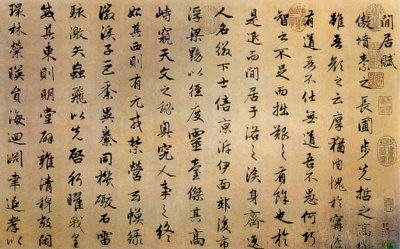 閒居賦
傲墳素之長圃步先哲之高衢
雖吾顏之云厚猶內愧於甯蘧
有道吾不仕無道吾不愚何巧
智之不足而拙艱之有餘也於
是退而閒居于洛之涘身齊逸
人名綴下士倍京泝伊面郊後市
浮梁黝以徑度靈臺傑其高
峙窺天文之秘奧究人事之終
始其西則有元戎禁營玄幙綠
徽谿子巨黍異絭同機礮石雷
駭激矢蝱飛以先啓行耀我皇
威其東則明堂辟雍清穆敞閑
環林縈暎圓海迴淵聿追孝以